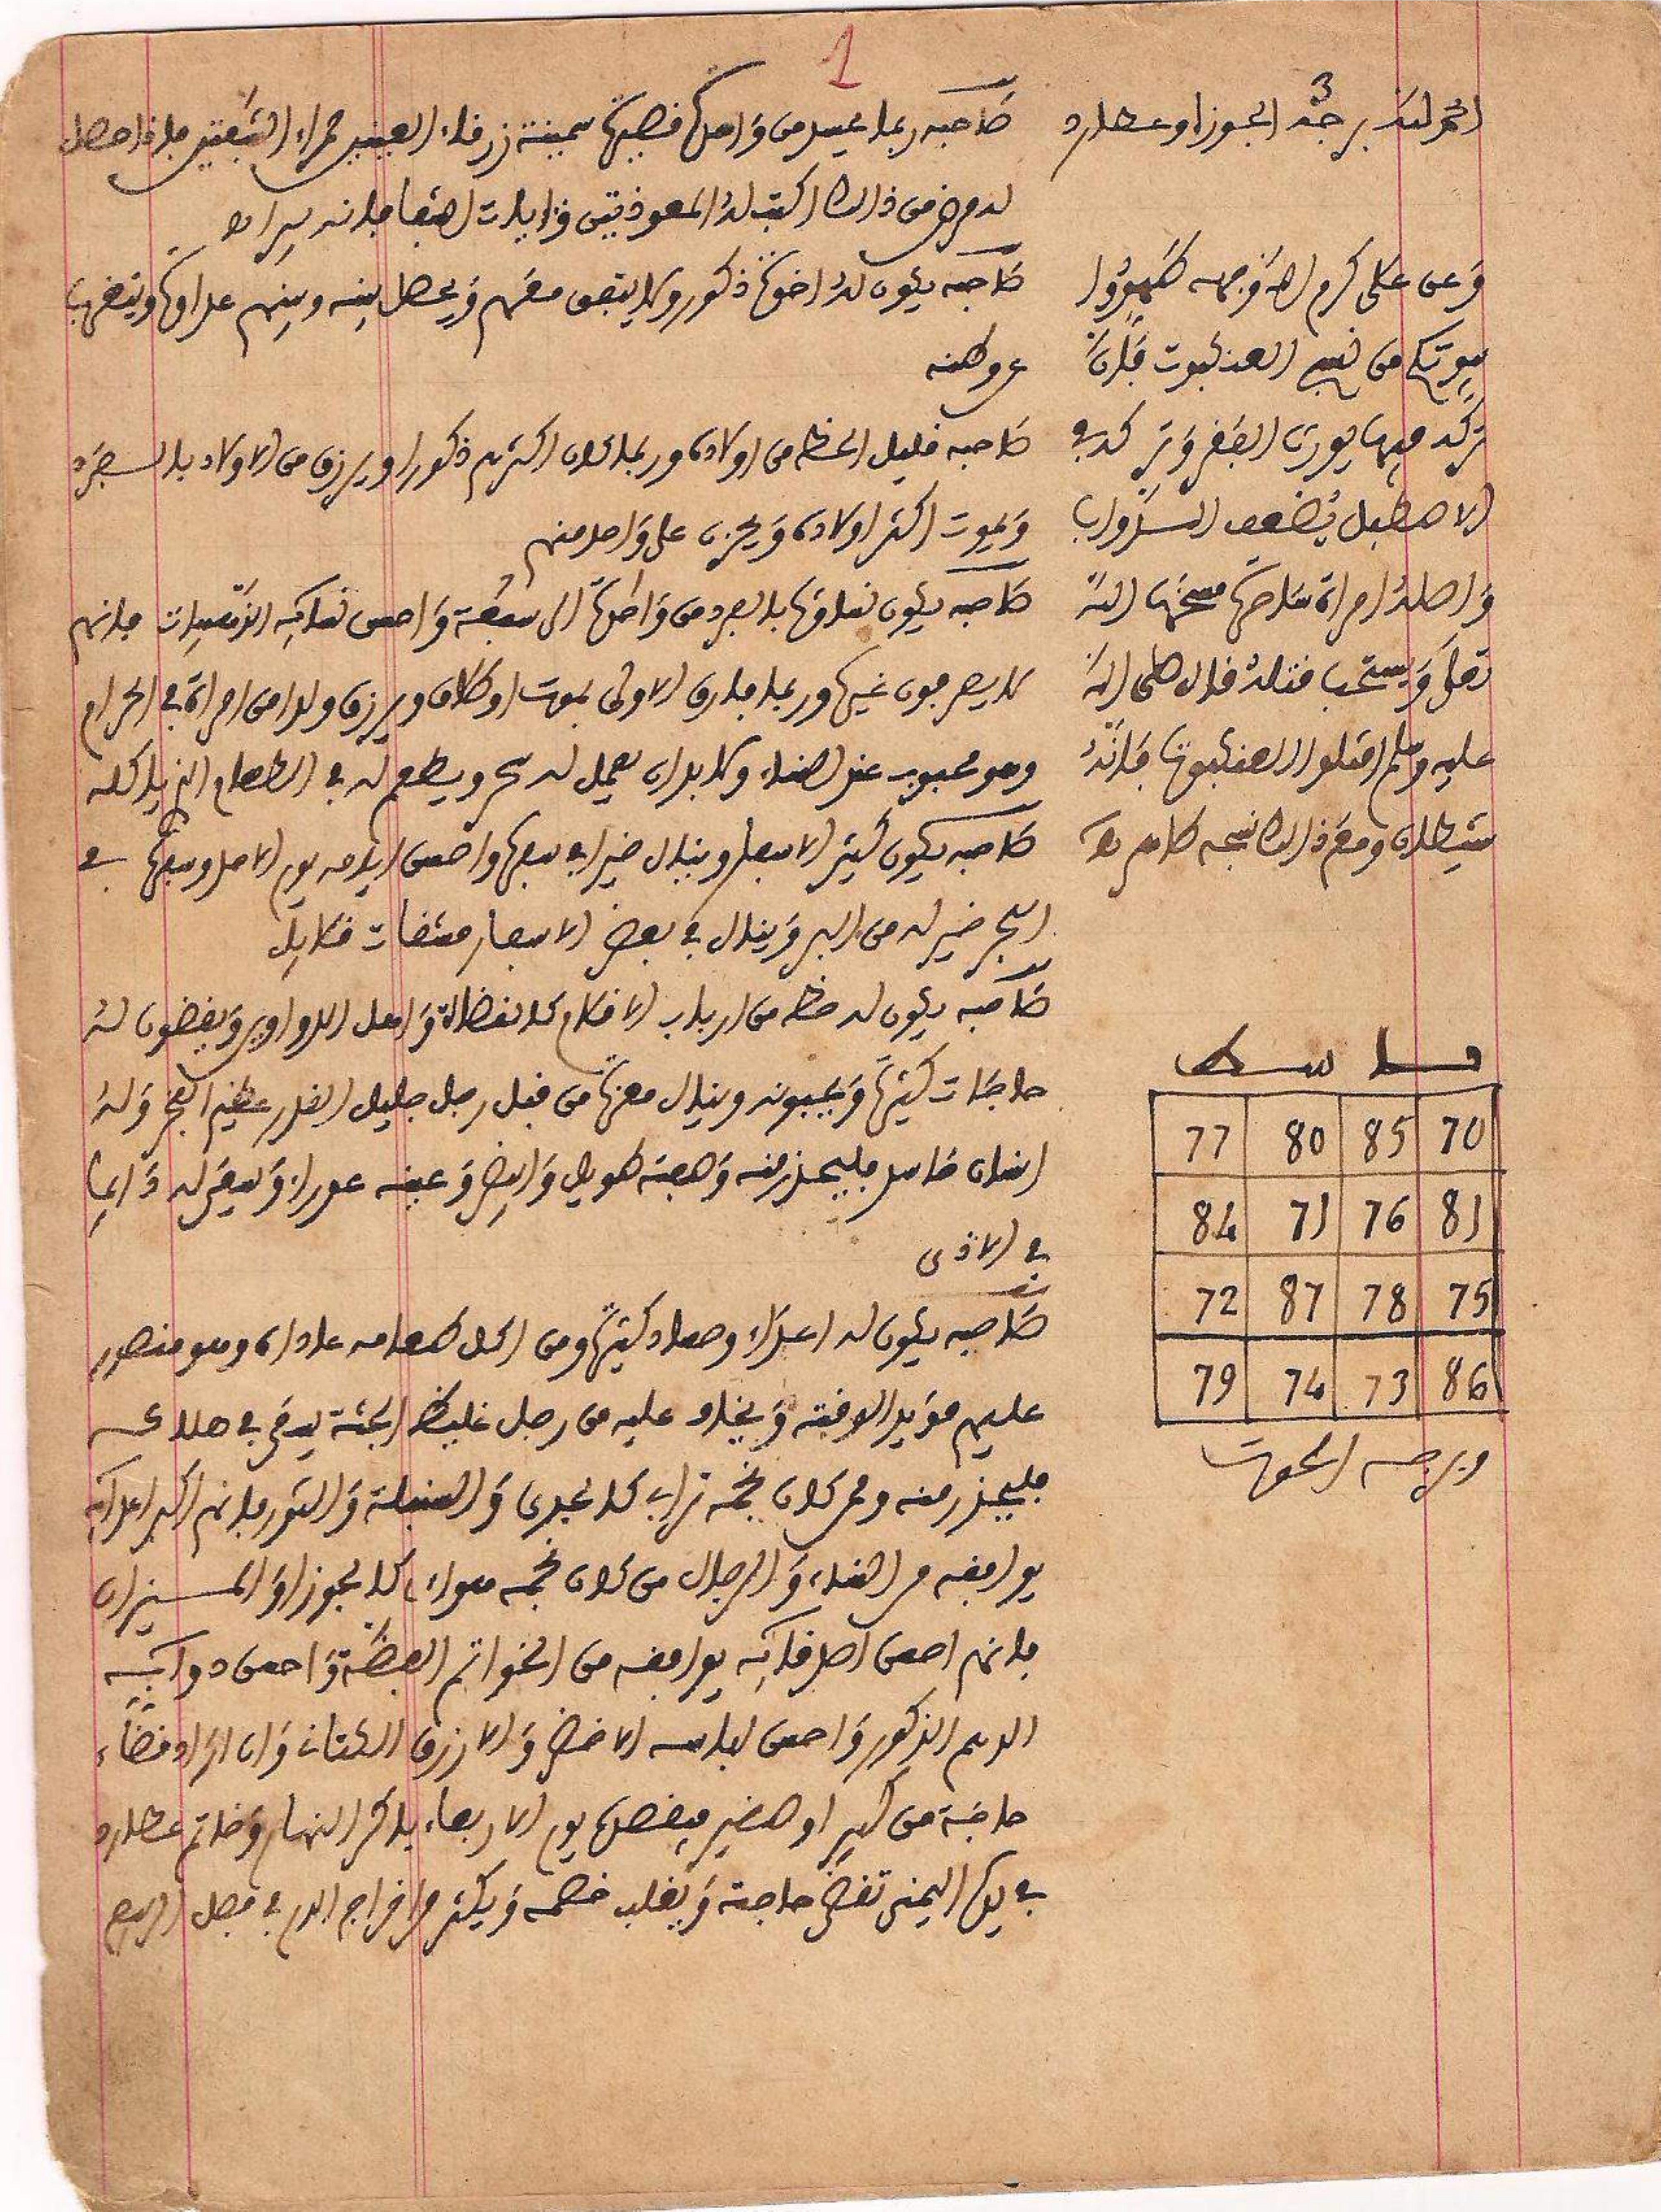 1
3
الحمد لله برجه الجوزا وعطارد
وعن علي كرم الله وجهه طهروا
بيوتكم من نسج العنكبوت فإن
تركه فيها يورث الفقر وتركه في
الاصطبل يضعف الدواب
واصله امراة ساحرة مسخها الله
تعلى ويستحب قتله قال صلى الله
عليه وسلم اقتلوا العنكبوت فإنه
شيطان ومع ذالك نسجه طاهر
77 80 85 70
84 71 76 81
72 87 78 75
79 74 73 86
وبرجه الحوت
صاحبه ربما يحسد من وامراة قصيرة سمينة زرقاء العينين حمراء الشفتين فإذا حصل
له مرض من ذالك اكتب له المعوذتين وءايات الشفا فإنه يبرا
صاحبه يكون له اخوة ذكور ولا يتفق معهم ويحصل بينه وبينهم عداوة ويتغرب
عن وطنه
صاحبه قليل الحظ من اولاده وربما كان اكثرهم ذكورا ويرزق من الاولاد بالسعد
ويموت اكثر اولاده ويحزن على واحد منهم
صاحبه يكون نساؤه بالعدد من واحدة الى سبعة واحسن نسائه الثيبات فإنهم
لا يعرفون غيره وربما فارق الاولى بموت او طلاق ويرزق ولدا من امراة في الحرام
وهو محبوب عند النساء ولا بد ان يعمل له سحر ويطعم له في الطعام الذي ياكله
صاحبه يكون كثير الاسفار وينال خيرا في سفره واحسن ايامه يوم الاحد وسفره في
البحر خير له من البر وينال في بعض الاسفار مشقات
صاحبه يكون له حظ من ارباب الاقلام كالقضاة واهل الدواوين ويقضون له
حاجات كثيرة ويحبونه وينال معزة من قبل رجل جليل القدر عظيم الفخر وله
انسان حاسد فليحذر منه وصفته طويل وابيض وعينه عورا ويسعى له دائما
في الاذى
صاحبه يكون له اعداء وحساد كثيرة ومن اكل طعامه عاداه وهو منصور
عليهم مؤيد الوقت ويخاف عليه من رجل غليظ الجثة يسعى في هلاكه
فليحذر منه ومن كان نجمه ترابي كالجدي والسنبلة والثور فإنهم اكبر اعدائه
يوافقه من النساء والرجال من كان نجمه هوائي كالجوزا والميزان
فإنهم احسن اصدقائه يوافقه من الخواتم الفضة واحسن دوابه
الدهم الذكور واحسن لباسه الاخضر والازرق الكتان وان اراد قضاء
حاجة من كبير او صغير فيقصده يوم الاربعاء باكر النهار وخاتم عطارد
في يده اليمنى تقضى حاجته ويغلب خصمه ويكثر من اخراج الدم في فصل الربيع